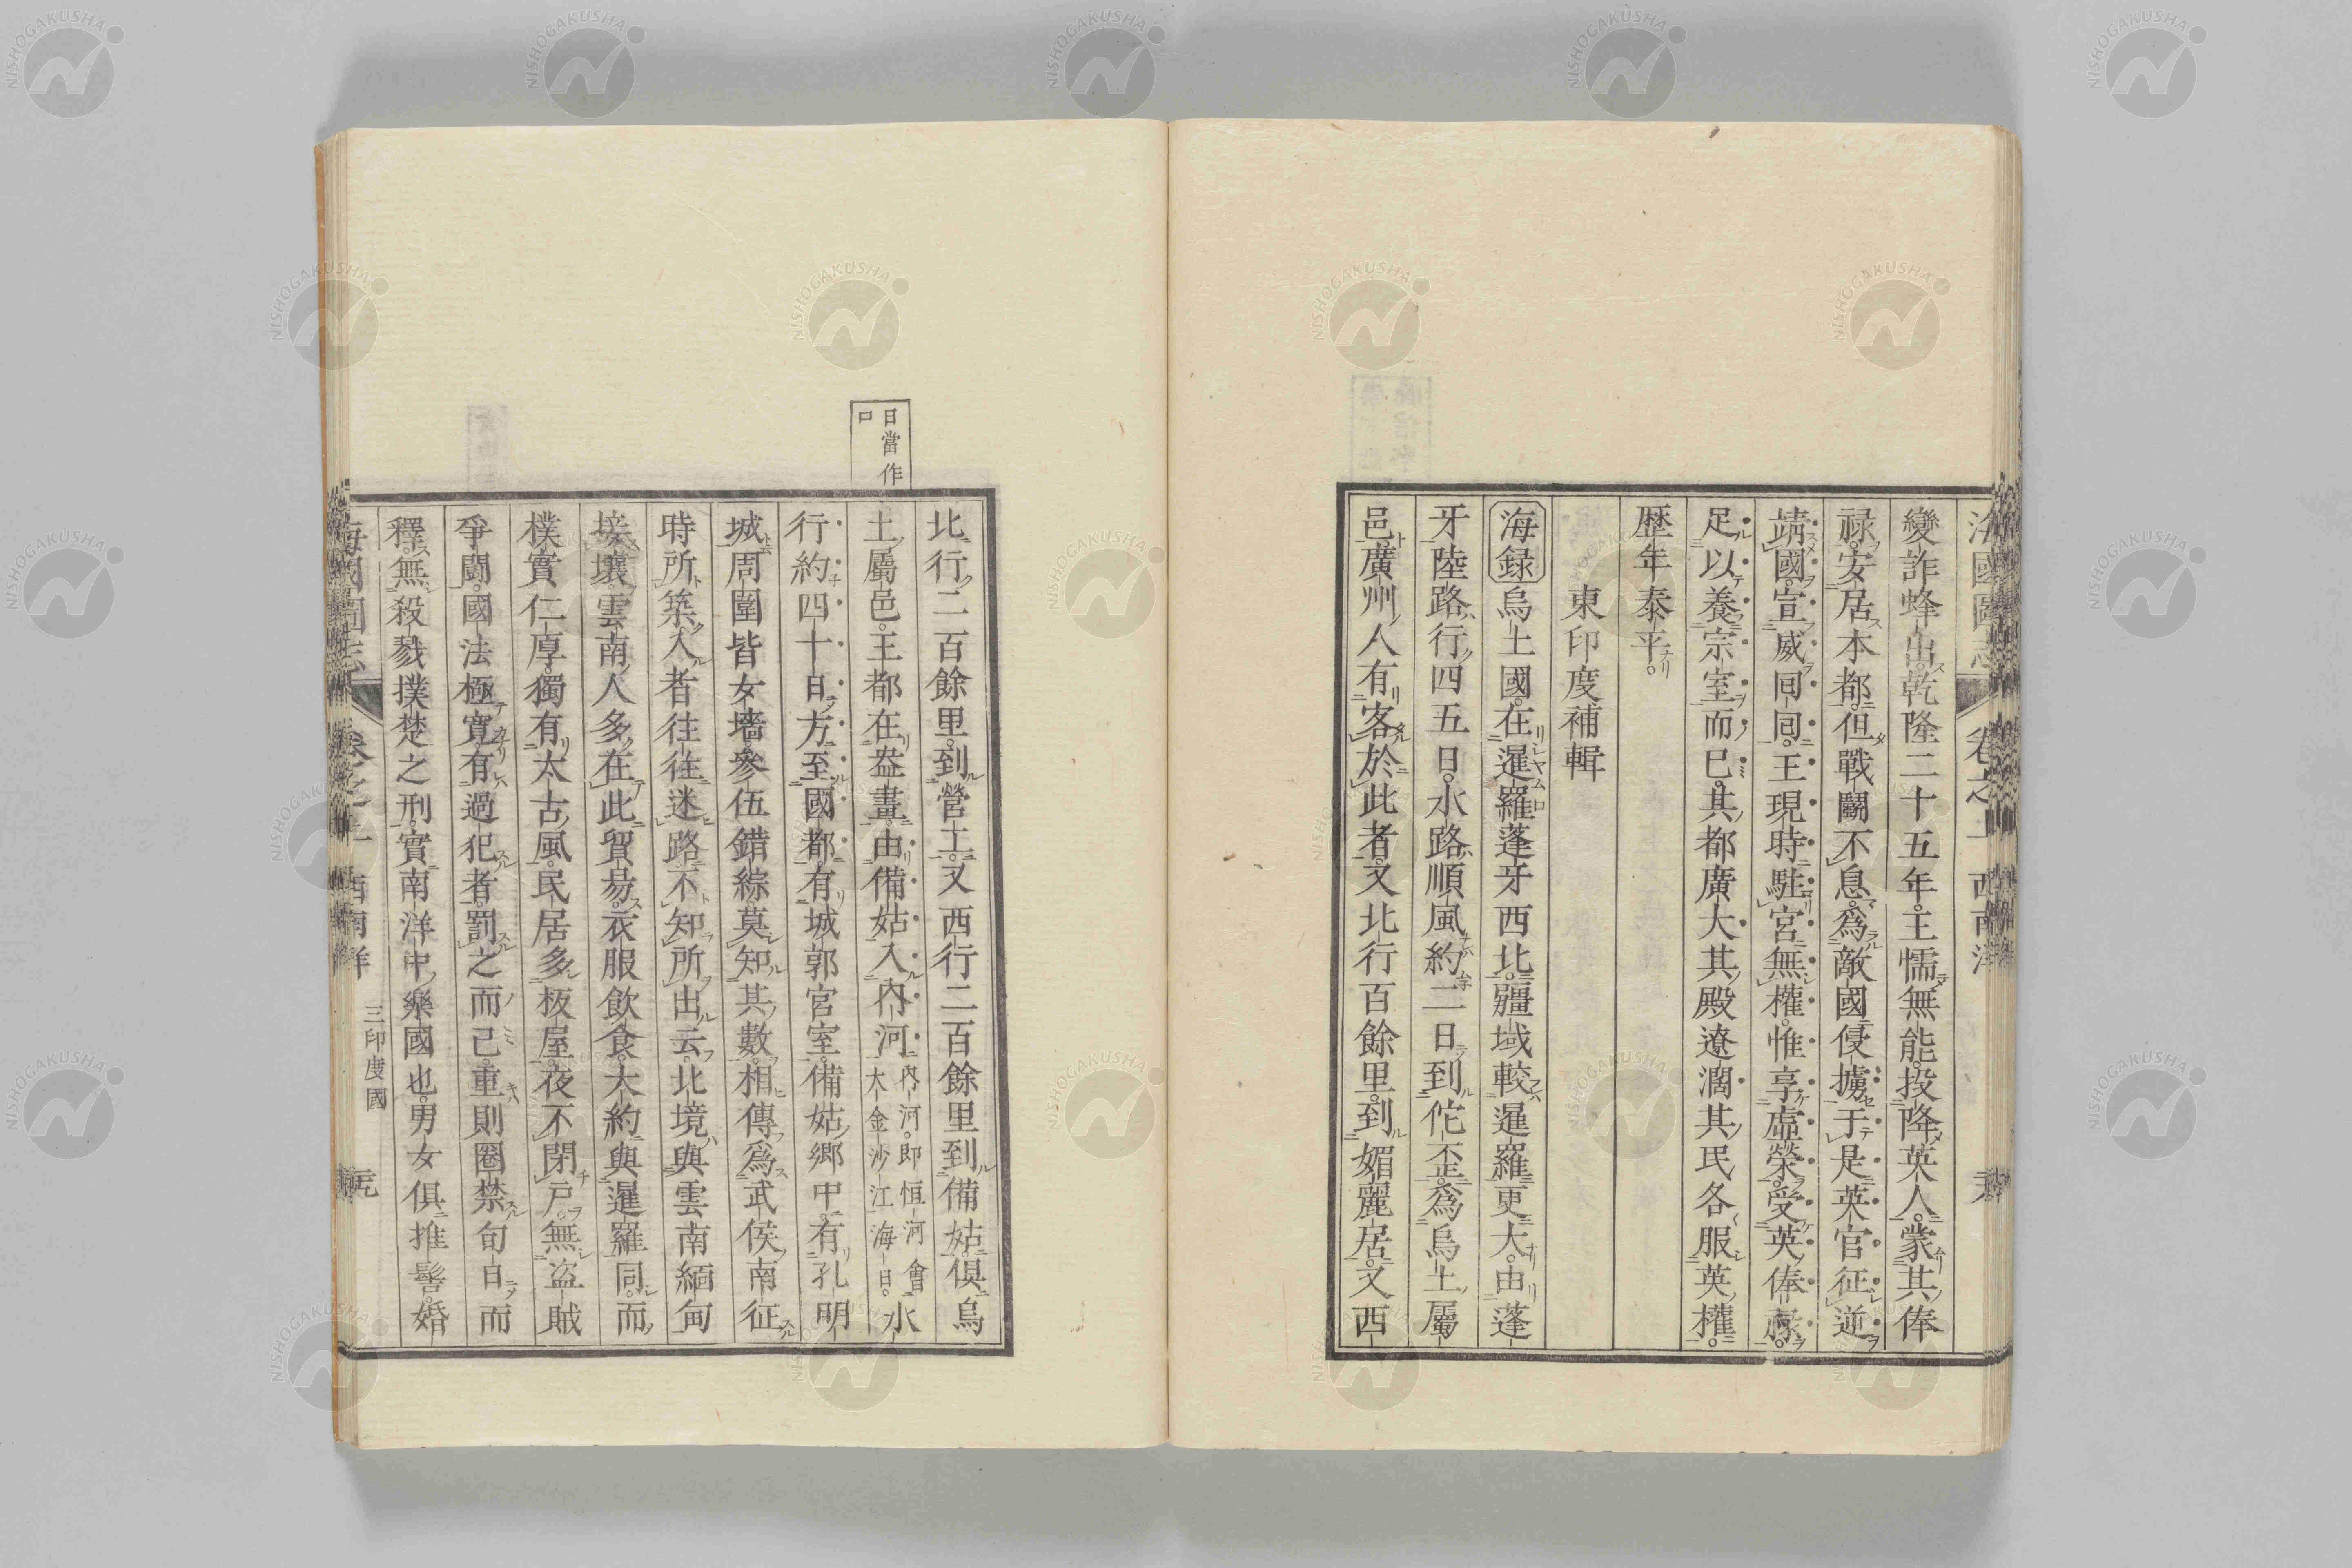 海國圖志 卷之 西南洋
變詐蜂出。乾隆二十五年。王懦無能。投降英人。蒙其俸
祿。安居本都。但戰鬭不息。爲敵國侵擄。于是英官征逆
靖國。宣威囘囘。王現時駐宮無權。惟享虛榮。受英俸祿。
足以養宗室而已。其都廣大。其殿遼濶。其民各服英權。
歷年泰平。
東印度補輯
海録烏土國。在暹羅蓬牙西北。疆域較暹羅更大。由蓬
牙陸路行四五日。水路順風約二日。到佗歪。爲烏土屬
邑。廣州人有客於此者。又北行百餘里。到媚麗居。又西
北行二百餘里。到營工。又西行二百餘里。到備姑。俱烏
土屬邑。王都在盎畫。由備姑入內河內河。卽恒河會大金沙江海日。水
行約四十日。方至國都。有城郭宮室。備姑鄉中。有孔明
城。周圍皆女墻。參伍錯綜。莫知其數。相傳爲武侯南征
時所築。入者往往迷路。不知所出云。北境與雲南緬甸
接壤。雲南人多在此貿易。衣服飲食。大約與暹羅同。而
樸實仁厚。獨有太古風。民居多板屋。夜不閉戶。無盜賊
爭鬪。國法極寬。有過犯者。罰之而已。重則圈禁旬日而
釋。無殺戮撲楚之刑。實南洋中樂國也。男女俱推髻。婚
海國圖志 卷之 西南洋 三印度國
日當作
口
NISHOGAKUSHA